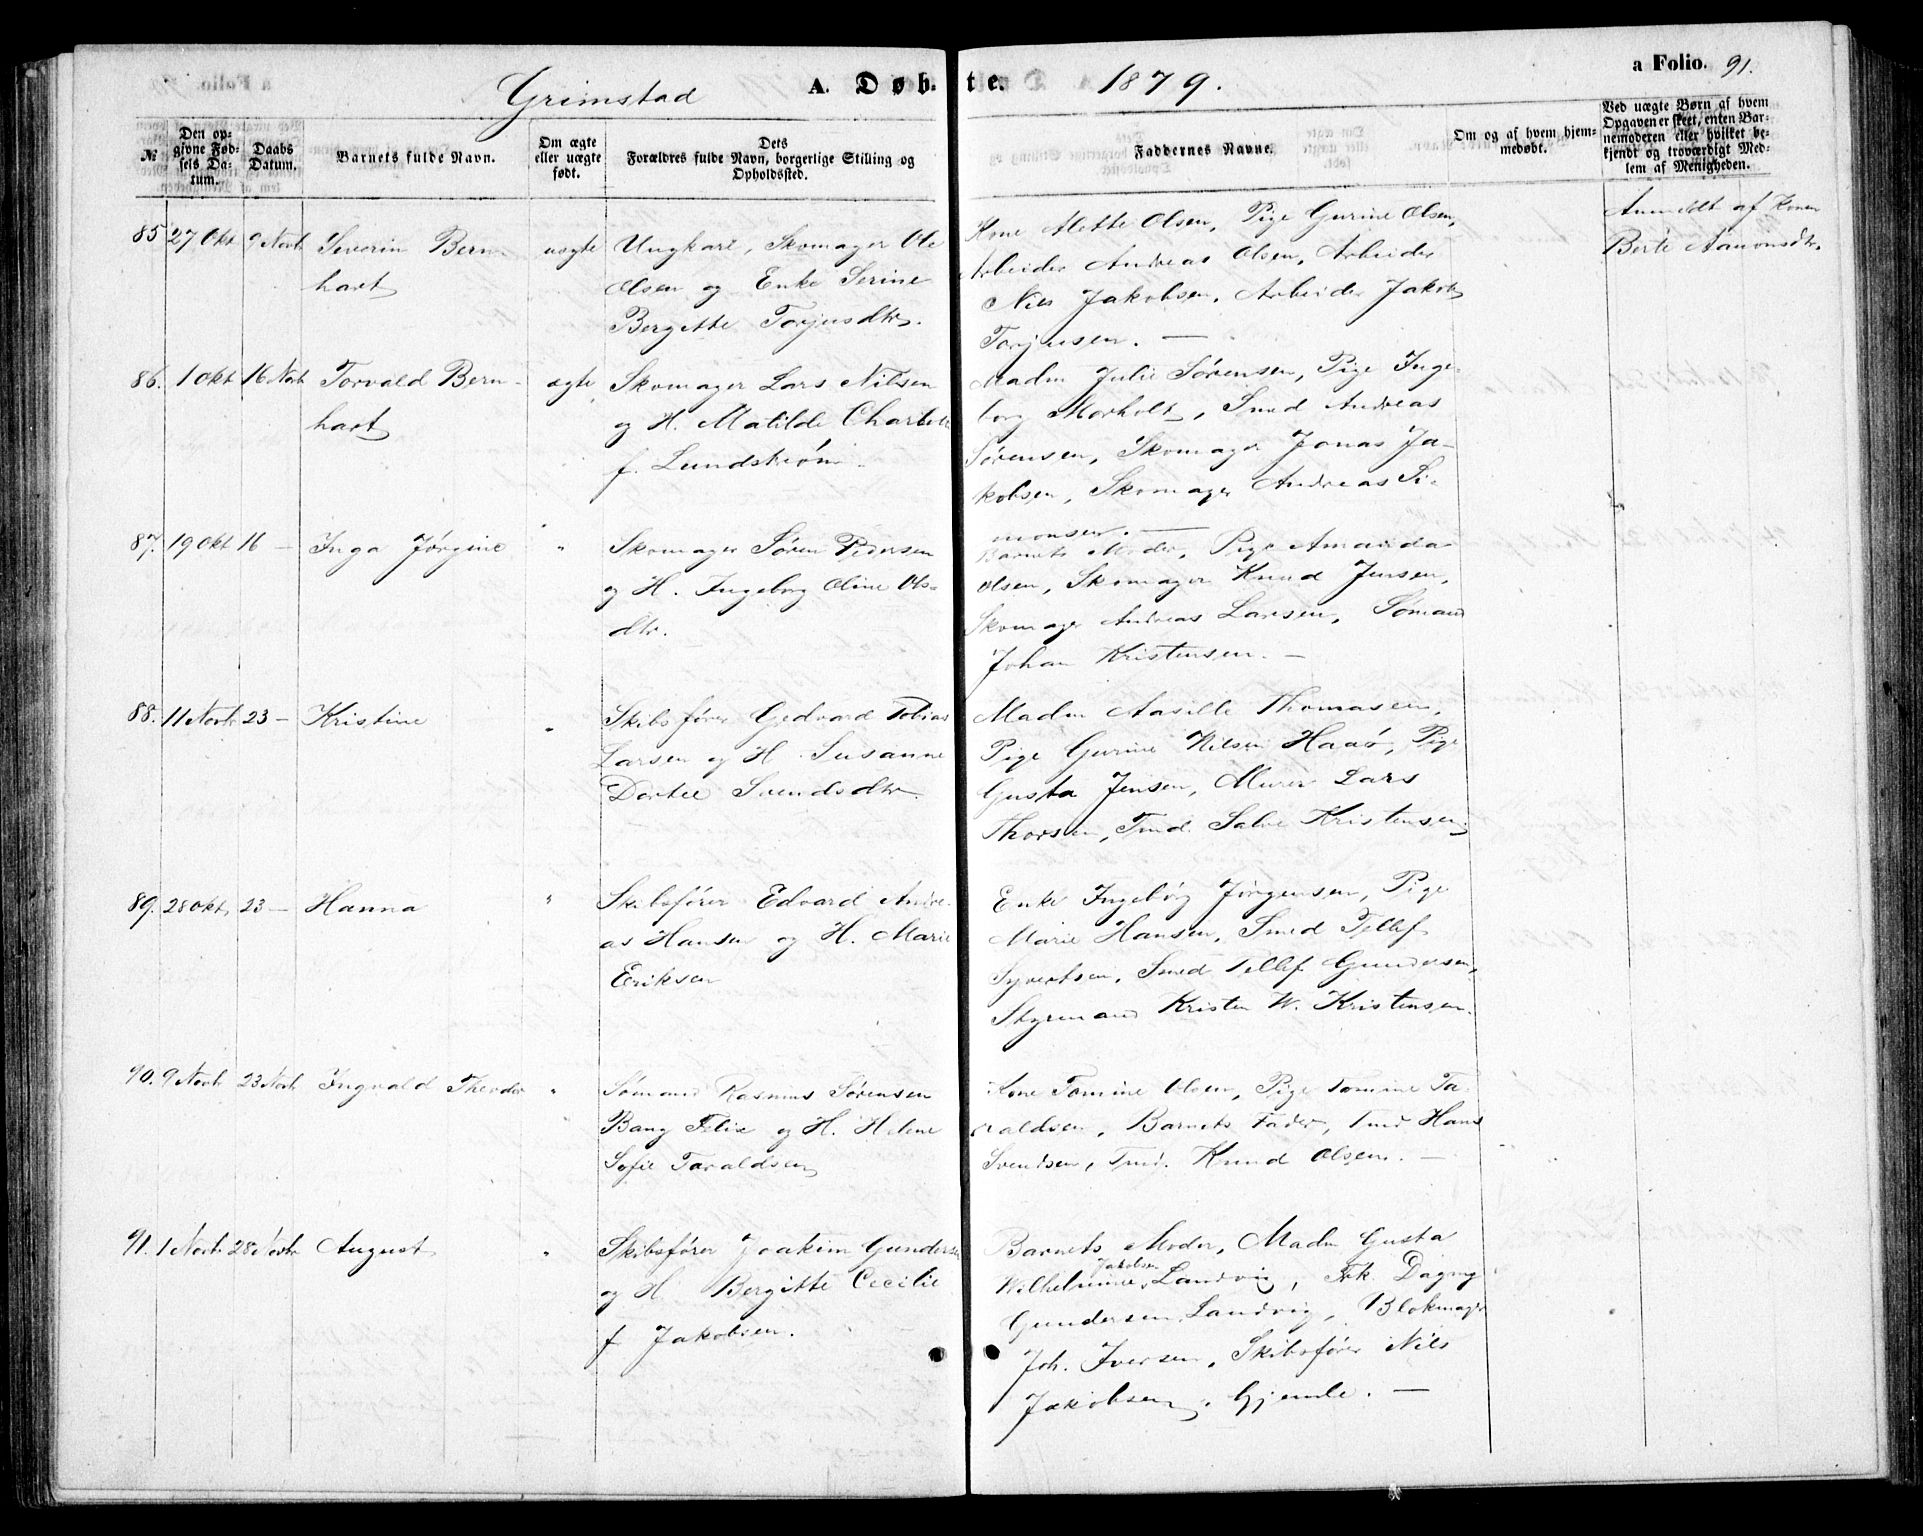 Grimstad
A. Døb-
te.
1879.
a Folio. 91.
№
Den op-
givne Fød-
sels Da-
tum.
Daabs
Datum.
Barnets fulde Navn.
Om ægte
eller uægte
født.
Dets
Forældres fulde Navn, borgerlige Stilling og
Opholdssted.
Faddernes Navne.
Om og af hvem hjem-
medøbt.
Ved uægte Børn af hvem
Opgaven er skeet, enten Bar-
nemoderen eller hvilket be-
kjendt og troværdigt Med-
lem af Menigheden.
85 27 Okt 9 Novb Severin Bern-
hart
uægte
Ungkarl, Skomager Ole
Olsen og Enke Serine
Bergitte Torjusdtr.
Kone Mette Olsen, Pige Gurine Olsen,
Arbeider Andreas Olsen, Arbeider
Nils Jakobsen, Arbeider Jakob
Torjusen. —
Anmeldt af Konen
Berte Aanonsdtr.
86. 1 Okt 16 Novb Torvald Bern-
hart
ægte
Skomager Lars Nilsen
og H. Matilde Charlotte
f. Lundstrøm.
Madm Julie Sørensen, Pige Inge-
borg Morholt, Smed Andreas
Sørensen, Skomager Jonas Ja-
kobsen, Skomager Andreas Si-
monsen. —
87. 19 Okt 16 — Inga Jørgine "
Skomager Søren Pedersen
og H. Ingeborg Oline Ols-
dtr.
Barnets Moder, Pige Amanda
Olsen, Skomager Knud Jensen,
Skomager Andreas Larsen, Sømand
Johan Kristensen. —
88. 11 Novb 23 — Kristine "
Skibsfører Gedvard Tobias
Larsen og H. Susanne
Dortee Svendsdtr.
Madm Aasille Thomasen,
Pige Gurine Nilsen Haaø, Pige
Gusta Jensen, Murer Lars
Thorsen, Tmd. Salve Kristensen.
89. 28 Okt. 23 — Hanna "
Skibsfører Edvard Andre-
as Hansen og H. Marie
Eriksen
Enke Ingebørg Jørgensen, Pige
Marie Hansen, Smed Tellef
Syvertsen, Smed Tellef Gundersen,
Styrmand Kristen W. Kristensen.
90. 9 Novb 23 Novb Ingvald Theodor "
Sømand Rasmus Sørensen
Bang Felix og H. Helene
Sofie Taraldsen
Kone Tomine Olsen, Pige Tomine Ta-
raldsen, Barnets Fader, Tmd Hans
Svendsen, Tmd. Knud Olsen. —
91. 1 Novb 28 Novb August "
Skibsfører Joakim Gundersen
og H. Bergitte Cecilie
f. Jakobsen.
Barnets Moder, Madm Gusta
Jakobsen
Wilhelmine, Landvig, Frk. Dagny
Gundersen, Landvig, Blokmager
Joh. Iversen, Skibsfører Nils
Jakobsen, Gjemle. —